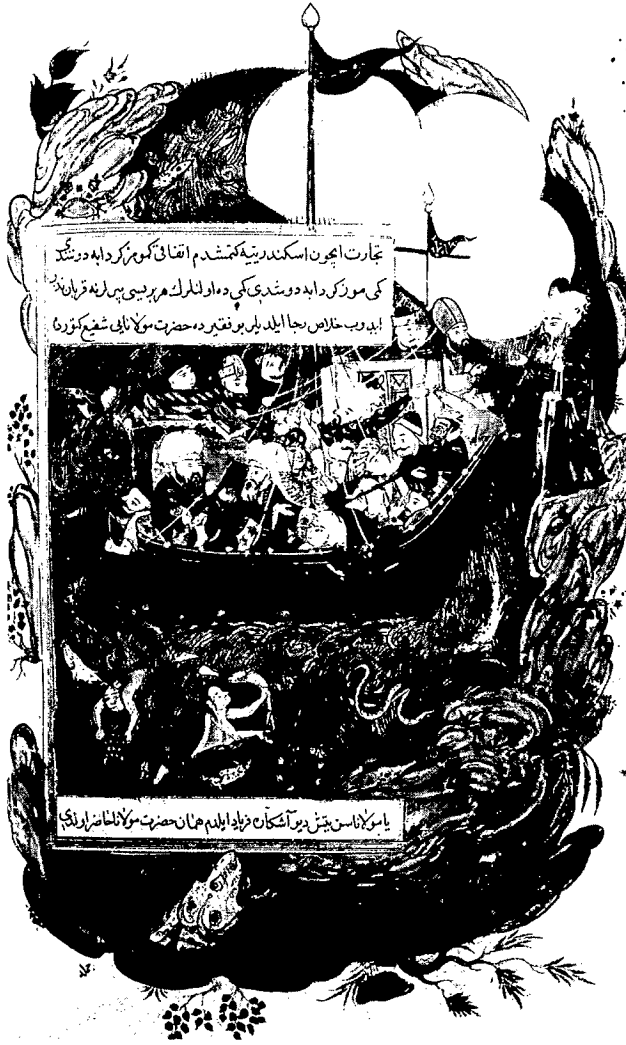 تجارت ایچون اسکندریّه‌یه کتمشدم اتفاقی کمومز کردابه دوشدی
کمی‌موز کردابه دوشدی کمی ده اولنلرك هر بریسی پیرلرنه قربان نذر
ایدوب خلاص رجا ایلدیلر بو فقیر ده حضرت مولانایی شفیع کتوردی
یا مولانا سن یتش دیو آشکاره فریاد ایلدم همان حضرت مولانا حاضر اولدی